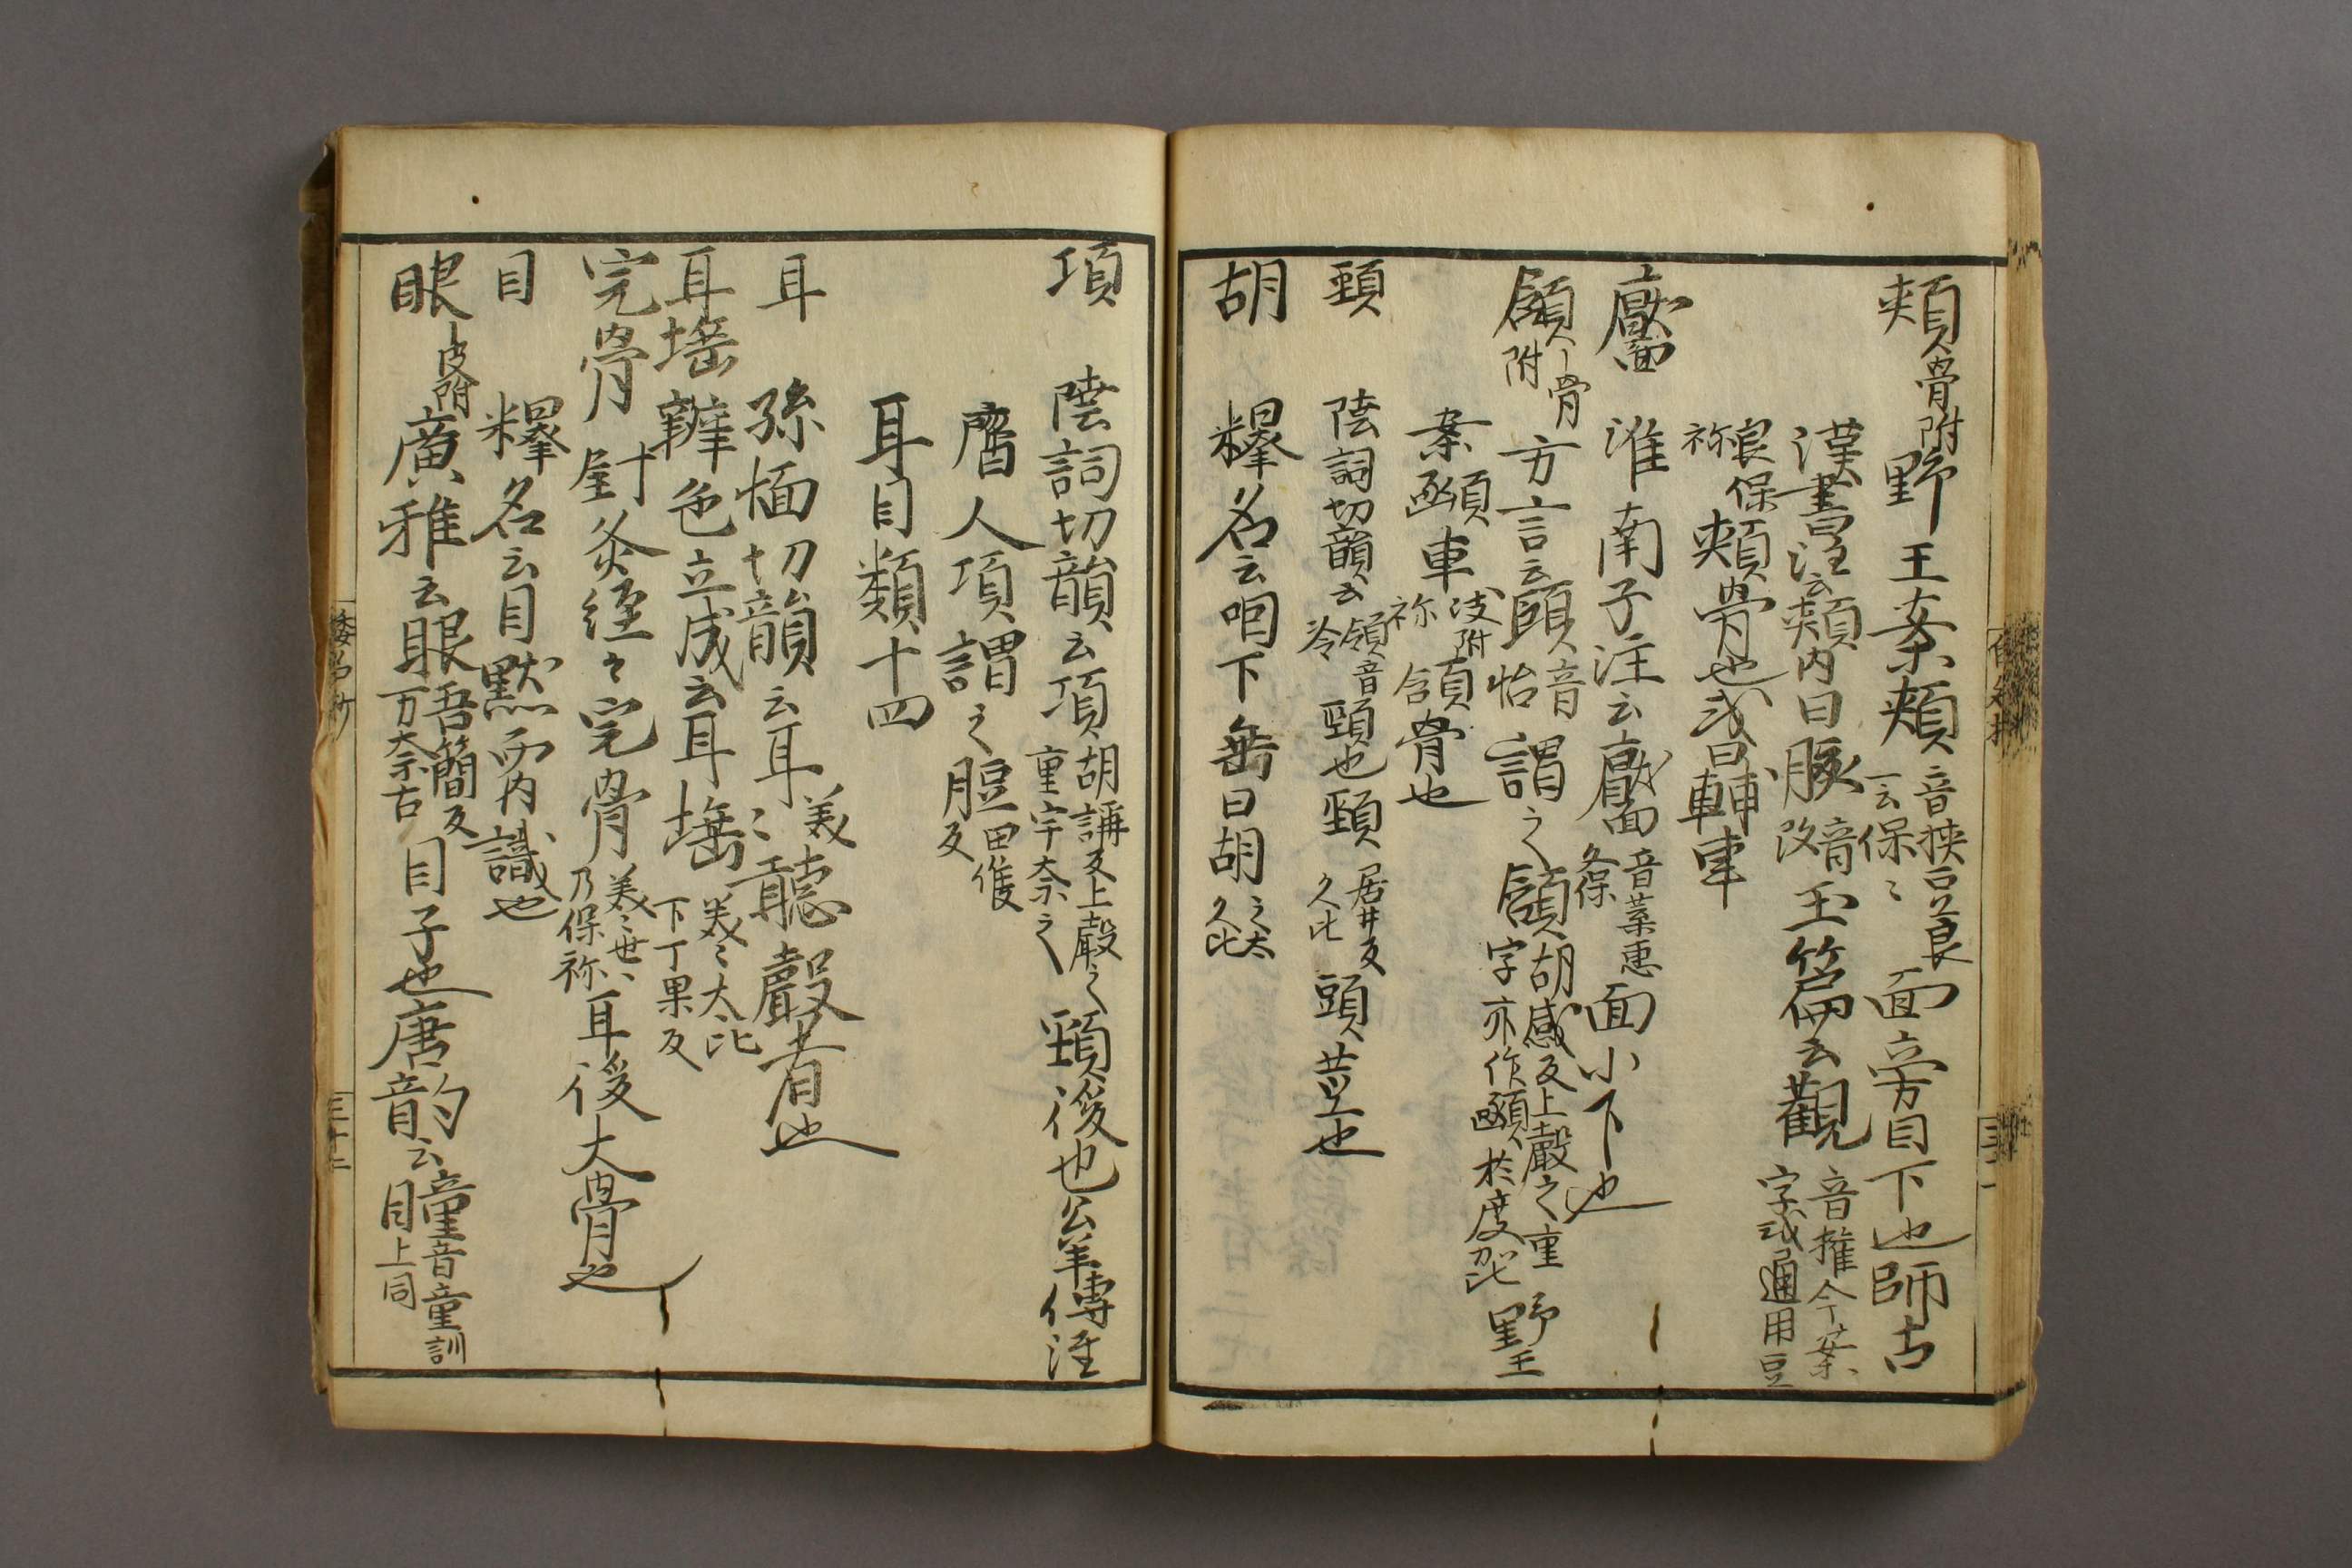 頬骨附野王案頬音狹豆良一云保〻面旁目下也師古
漢書注云頬内曰脥音改玉篇云觀音權今案字或通用豆
良保祢頬骨也或曰輔車
靨淮南子注云靨音葉恵久保面小下也
頷〡骨附方言云頤音怡謂之頷胡感反上聲之重字亦作顄於度加比野王
案顄車波附祢含頷骨也
頸陸詞切韻云領音冷頸也頸居井反久比頭莖也
胡釋名云咽下垂曰胡之太久比
項陸詞切韻云項胡講反上聲之重宇奈之頸後也公羊傳注
齊人項謂之脰田候反
耳目類十四
耳孫愐切韻云耳美〻聽聲者也
耳埵辨色立成云耳埵美〻太比下丁果反
完骨針灸經云完骨美〻世〻乃保祢耳後大骨也
目釋名云目黙而内識也
眼〡皮附廣雅云眼吾簡反万奈古目子也唐韵云瞳音童訓目上同
倭名抄
三十二